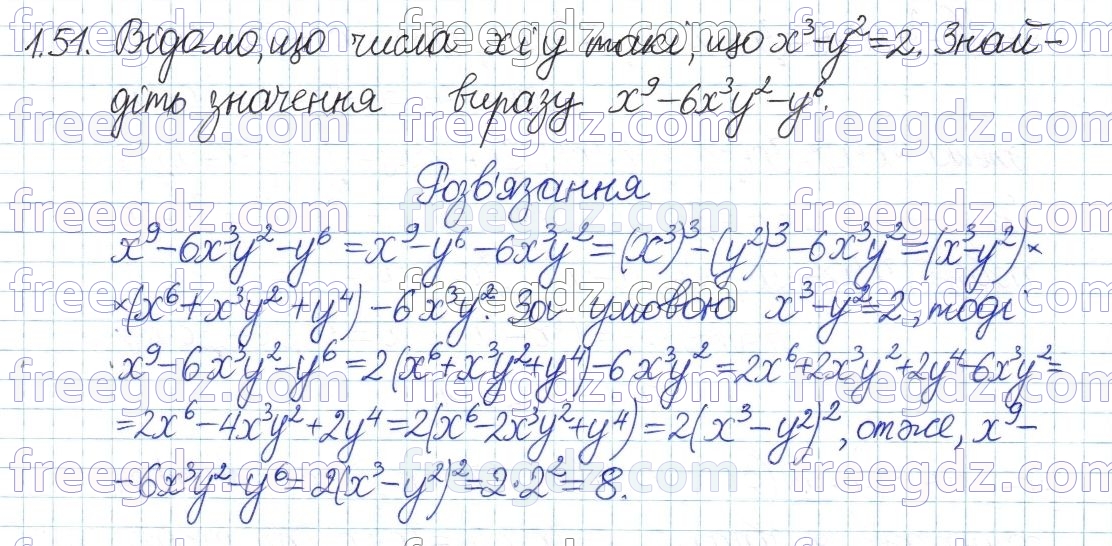 1.51. Відомо, що числа x і y такі, що x³-y²=2. Знай-
діть значення виразу x⁹-6x³y²-y⁶.
Розв'язання
x⁹-6x³y²-y⁶=x⁹-y⁶-6x³y²=(x³)³-(y²)³-6x³y²=(x³-y²)×
×(x⁶+x³y²+y⁴)-6x³y². За умовою x³-y²=2, тоді
x⁹-6x³y²-y⁶=2(x⁶+x³y²+y⁴)-6x³y²=2x⁶+2x³y²+2y⁴-6x³y²=
=2x⁶-4x³y²+2y⁴=2(x⁶-2x³y²+y⁴)=2(x³-y²)², отже, x⁹-
-6x³y²-y⁶=2(x³-y²)²=2·2²=8.
freegdz.com